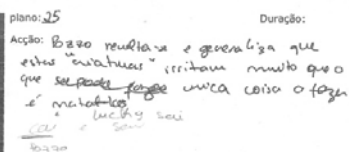 plano: 25 Duração:
Acção: Bozzo revolta-se e generaliza que
estas "criaturas" irritam muito que o
que se pode fazer unica coisa a fazer
é mata-los
lucky sai
cai e sem
Bozzo